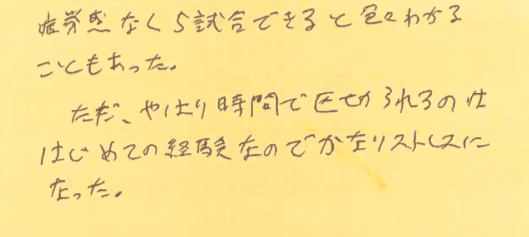 疲労感なく5試合できると色々わかる
こともあった。
ただ、やはり時間で区切られるのは
はじめての経験なのでかなりストレスに
なった。